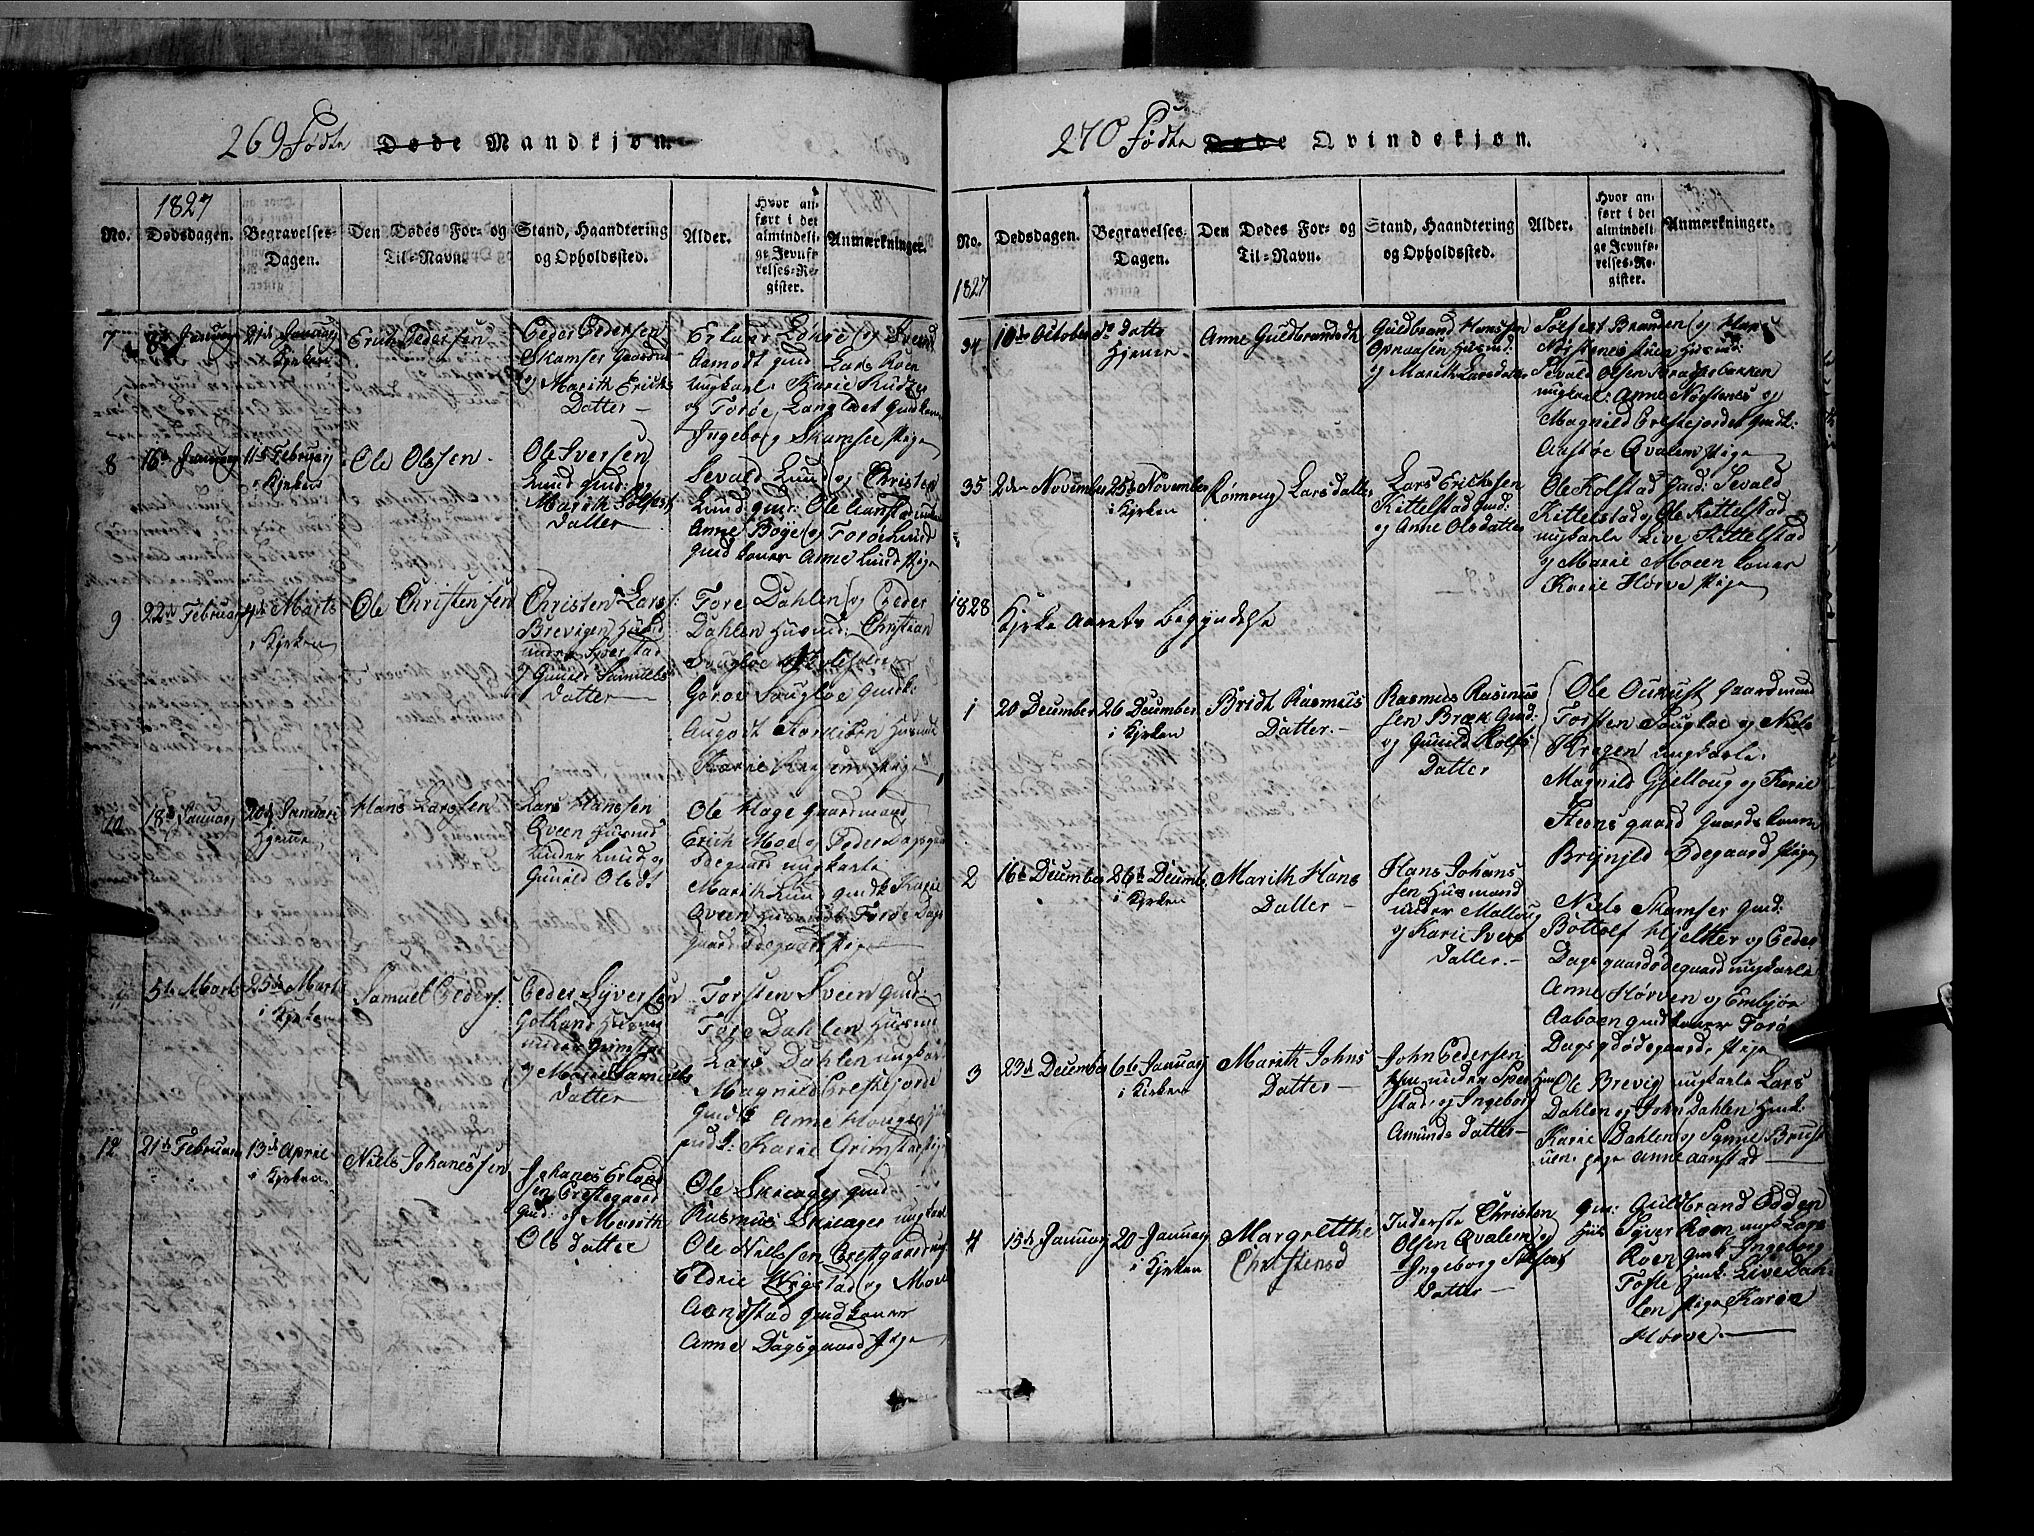 269 Fødte Døde Mandkjøn.
1827
No.
Dødsdagen.
Begravelses-
Dagen.
Den Dødes For- og
Til-Navn.
Stand, Haandtering
og Opholdssted.
Alder.
Hvor an-
ført i det
almindeli-
ge Jevnfø-
relses-Re-
gister.
Anmærkninger.
7
8de Januarj
21de Januarj
i Kjrken
Erich Pedersen
Peder Pedersen
Skamser Gaardm
og Marith Erichs
Datter
Aamodt gmd Lars Roen
ungkarl Karie
og Torøe
Ingeborg Skamser Pige
8
16de Januarj
11te Februarj
i Kjrken
Ole Olssen
Ole Iversen
Lund gmd: og
Marith Solfest
Datter
Sevald Lund og Christen
Lund gmd: Ole Aanstad
Anne Böye og Torøe Lund
gmd koner Anne Lund Pige
9
22de Februarj
4de Marts
i Kjrken
Ole Christensen
Christen Larss:
Brevigen Husmd
under Sperstad
og Gunild Samuels
Datter
Tore Dahlen og Peder
Dahlen Husmd: Christian
Sougloe
Gorov Sougloe Gmdk:
August
Karie
10
18de Januarj
20de Januari
Hjemme
Hans Larssen
Lars Hanssen
Qveen Husmd
under Lund og
Gunild Olsdt
Ole Hage gaardmand
Erich Moe og Peder Dagsgaa
ødegaard ungkarle
Marith Lund gmdk Karie
Qveen Husmdk Torøe Dags
gaards ødegaard Pige
11
5te Marts
25de Marts
i Kjrken
Samuel Peders:
Peder Syversen
under Grimstad
og Marie Samuels
Datter
Torsten Sveen gmd:
Tore Dahlen Husmd
Lars Dahlen ungkarl
Magnild Prestejorde
Gmdk Anne
gmdk: Karie Grimstad Pige
12
21de Februarj
13de April
i Kjrken
Niels Johanessen
Johanes Erland
sen Prestegaard
gmd: og Marith
Ols datter
Ole Skieager gmd
Rasmus Skieager ungkarl
Ole Nielssen Prestgaard
Eldrie Wigstad og Mari
Aandstad gmd koner
Anne Dagsgaard Pige
270 Fødte Døde Qvindekjøn.
No.
1827
Dødsdagen.
Begravelses-
Dagen.
Den Dødes For- og
Til-Navn.
Stand, Haandtering
og Opholdssted.
Alder.
Hvor an-
ført i det
almindeli-
ge Jevnfø-
relses-Re-
gister.
Anmærkninger.
34
10de October
do Datte
Hjemme
Anne Guldbrandsdt
Guldbrand Hanssen
Opnaasen Husmd:
og Marith Larsdatter
Solfest Branden og Hans
Nörstenes tuen Husmd:
Sevald Olsen Braggerbakken
ungkarl: Anne Nörstenes og
Magnild Prestejordet Gmdk:
Aastöe Qvalem Pige
35
2den November
25de November
i Kjrken
Rönnoug Larsdatter
Lars Erichssen
Kittelstad Gmd:
og Anne Olsdatter
Ole Kolstad Gmd: Sevald
Kittelstad og Ole Kittelstad
ungkarle Live Kittelstad
og Marie Moeen koner
Karie Horve Pige
1828
Kjrke Aarets Begyndelse
1
20 December
26 December
i Kjrken
Bridt Rasmus
Datter.
Rasmus Rasmus
sen Bræk Gmd:
og Gunild Rolfs
Datter
Ole August Gaardmand
Torsten Sougloe og Niels
Krogen ungkarle
Magnild Gjelloug og Karie
Steensgaard Gaards koner
Brynjld Ødegaard Pige
2
16de December
26de Decembr
i Kjrken
Marith Hans
Datter
Hans Johans
sen Husmand
under Molloug
og Karie Ivers
Datter.
Niels Skamser Gmd:
Bottolf Hjeltter og Peder
Dagsgaardsødegaard ungkarle
Anne Horven og Embjör
Aaboen gmd koner Torø
Dagsgdødegaards Pige
3
23de December
6te Januarj
i Kjrken
Marith Johns
Datter
John Pedersen
Hm under Sper
stad og Ingeborg
Amunds datter
Ole Brevig ungkarle Lars
Dahlen og John Dahlen Hmk:
Karie Dahlen og Synne Brust
uen Pige Anne Aanstad
4
15de Januarj
20 Januarj
i Kjrken
Margrethe
Christensd
Inderste Christen
Olsen Qvalem og
Ingeborg Solfest
Datter
Gm: Guldbrand Odden
Syver Roen ungk Lars
Roen Gmk Ingeborg
Tofte Hmk: Live Dah
len Pige Karen
Horve.